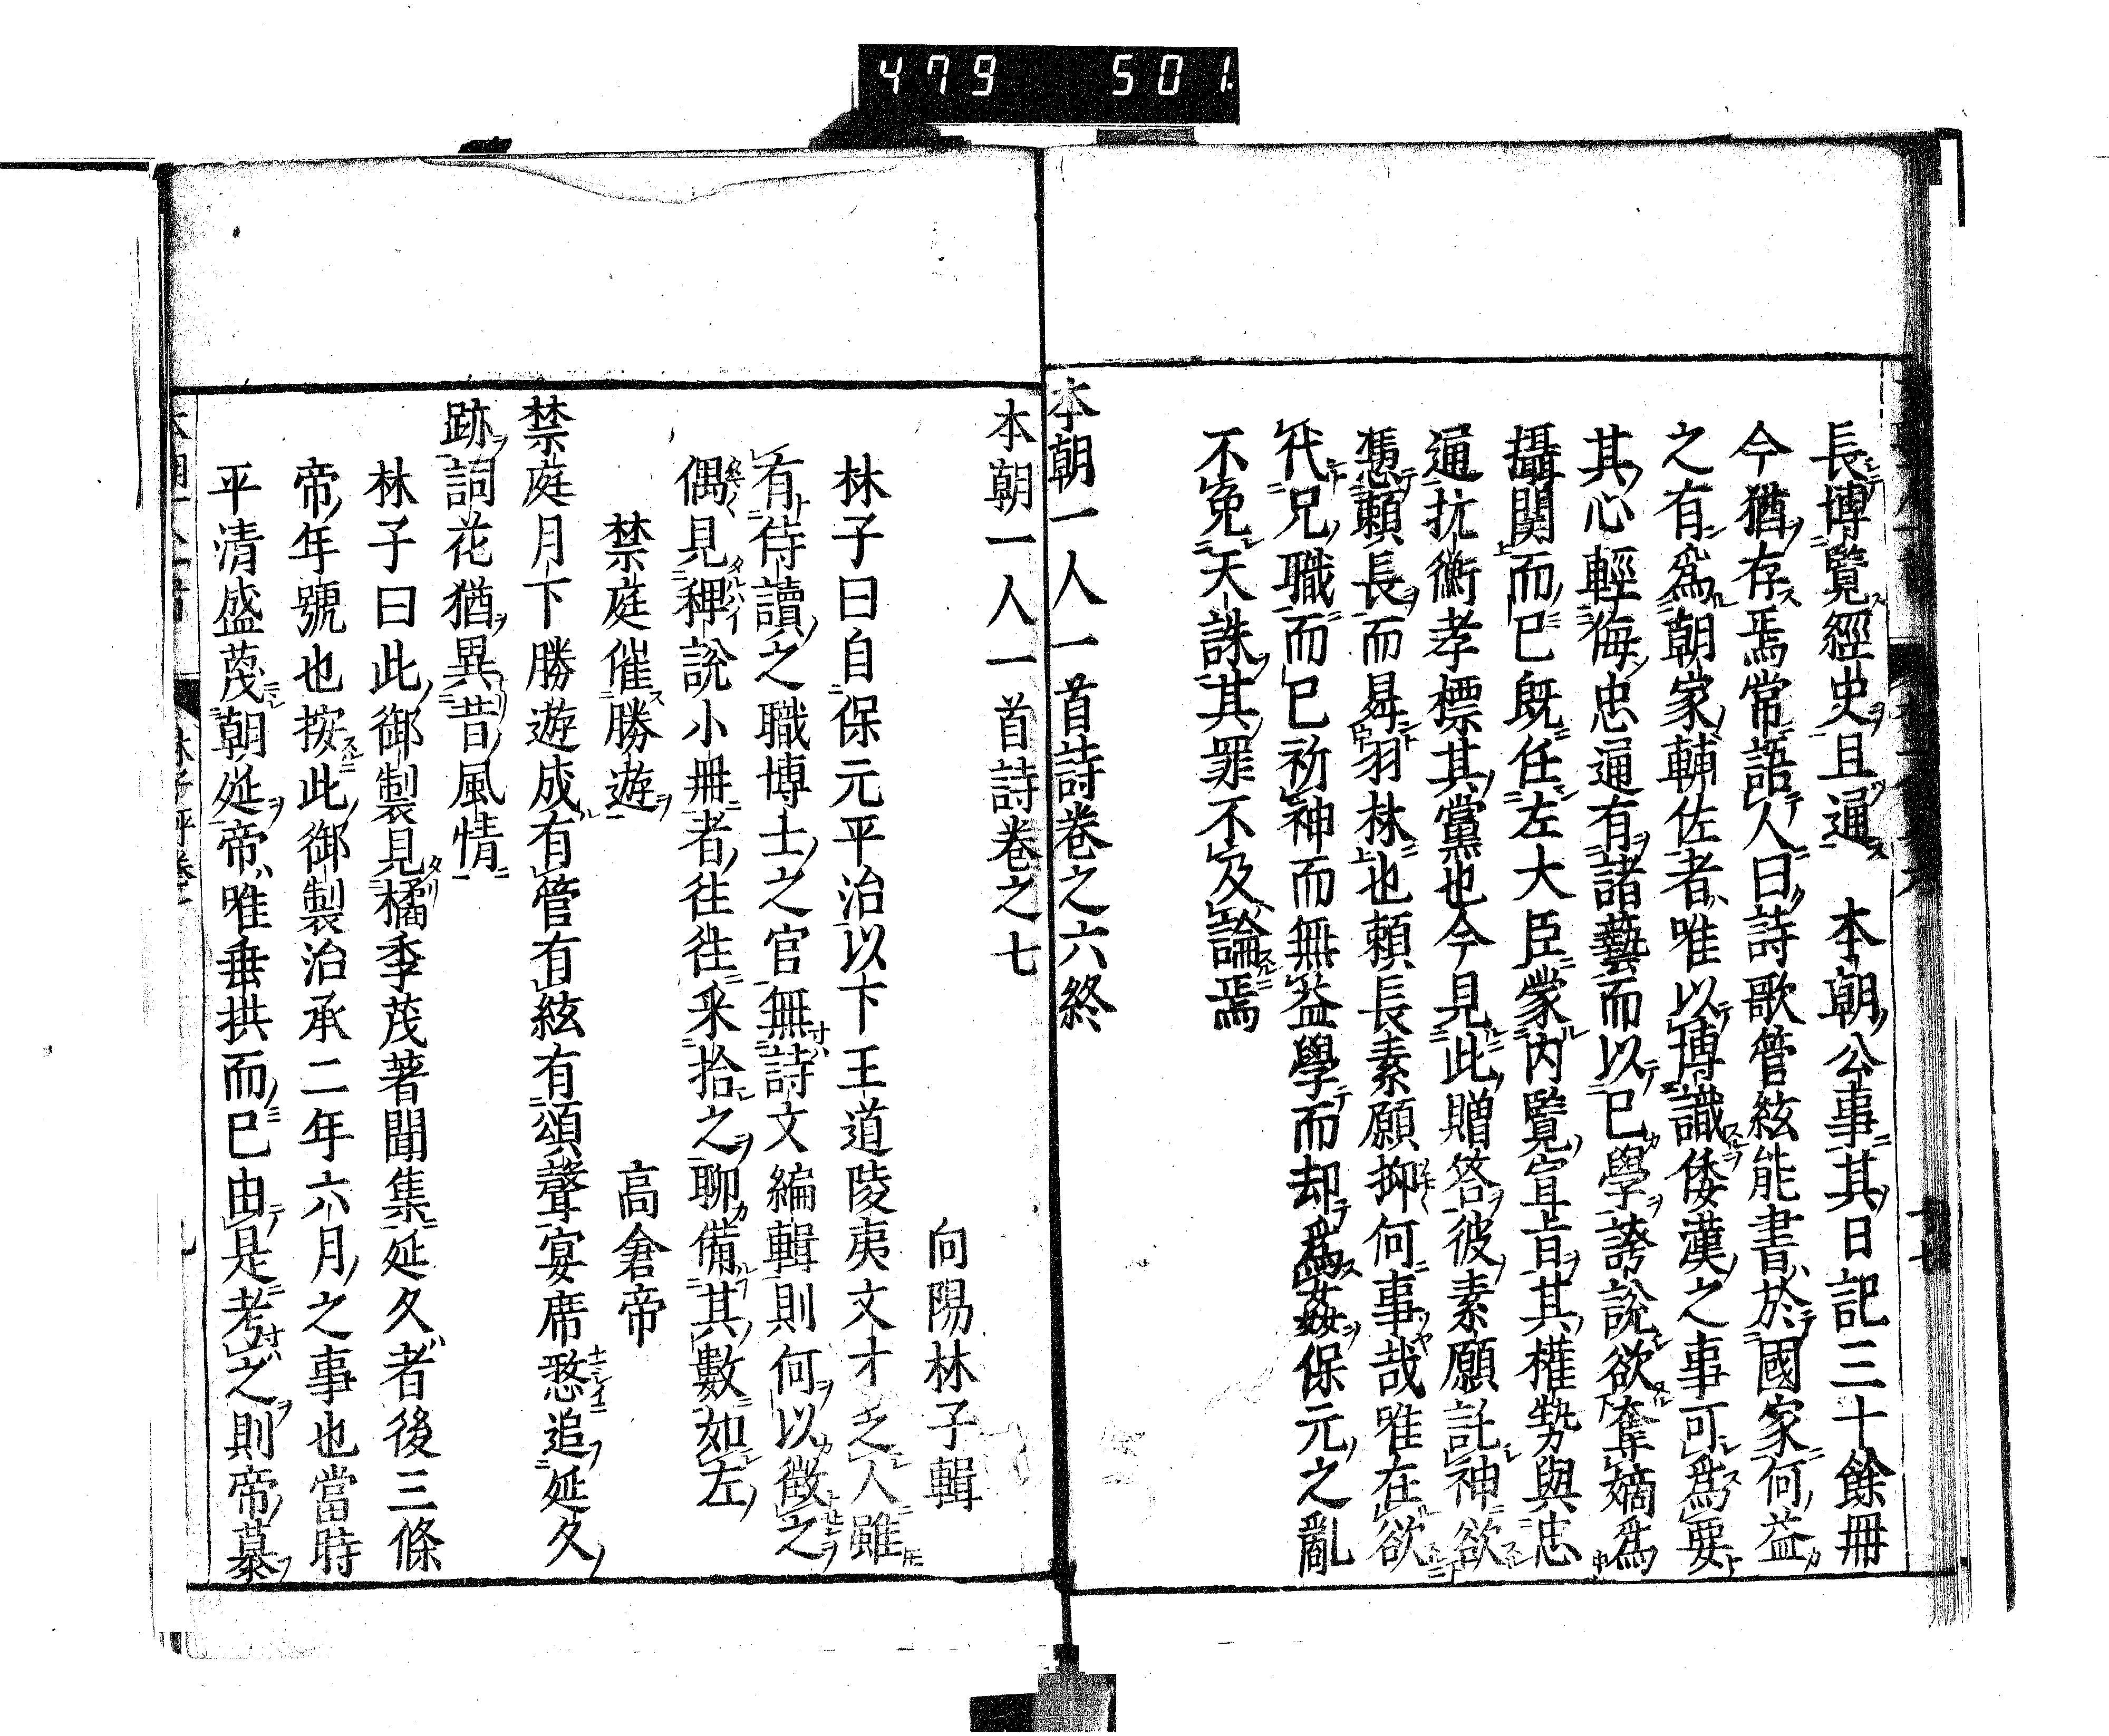 479 501.
長博覽經史且通 本朝公事其日記三十餘冊
今猶存焉常語人曰詩歌管絃能書於國家何益
之有爲朝家輔佐者唯以博識倭漢之事可爲要
其心輕侮忠通有諸藝而以已學誇說欲奪嫡爲
攝関而已既任左大臣蒙内覽宣旨其權勢與忠
通抗衡孝標其黨也今見此贈答彼素願託神欲
憑賴長而昇羽林也賴長素願抑何事哉唯在欲
代兄職而已祈神而無益學而却爲姦保元之亂
不免天誅其罪不及論焉
本朝一人一首詩卷之六終
本朝一人一首詩卷之七
向陽林子輯
林子曰自保元平治以下王道陵夷文才乏人雖
有侍讀之職博士之官無詩文編輯則何以徵之
偶見稗說小冊者往往釆拾之聊備其數如左
禁庭催勝遊 高倉帝
禁庭月下勝遊成有管有絃有頌聲宴席憗追延久
跡詞花猶異昔風情
林子曰此御製見橘季茂著聞集延久者後三條
帝年號也按此御製治承二年六月之事也當時
平清盛蔑朝廷帝唯垂拱而已由是考之則帝慕